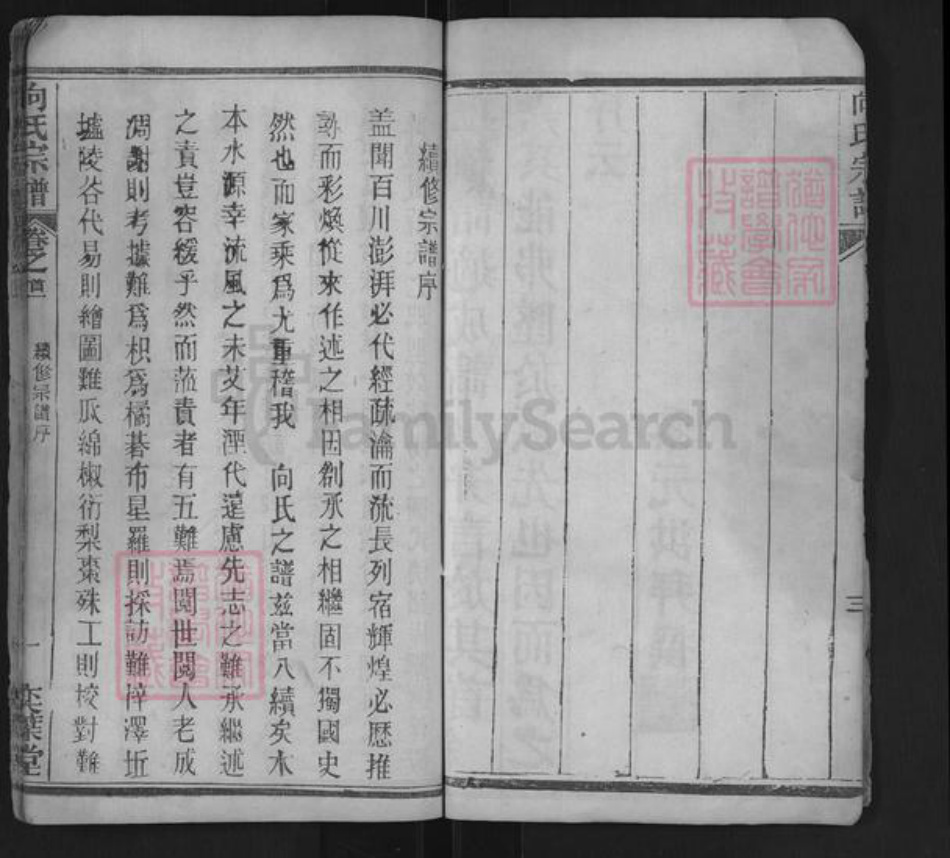 向氏宗譜
三
續修宗譜序
蓋聞百川澎湃必代經疏瀹而流長列宿輝煌必歷推
勘而彩煥從來作述之相因創承之相繼固不獨國史
然也而家乘爲尤重稽我 向氏之譜茲當八續矣木
本水源幸流風之未艾年湮代遠慮先志之難承繼述
之責豈容緩乎然而蒞責者有五難焉閱世閱人老成
凋謝則考據難爲枳爲橘碁布星羅則採訪難梓澤坵
墟陵谷代易則繪圖難瓜綿椒衍梨棗殊工則挍對難
向氏宗譜
卷之首
續修宗譜序
一
葉堂
FamilySearch
譜學會
收藏
譜學會
收藏